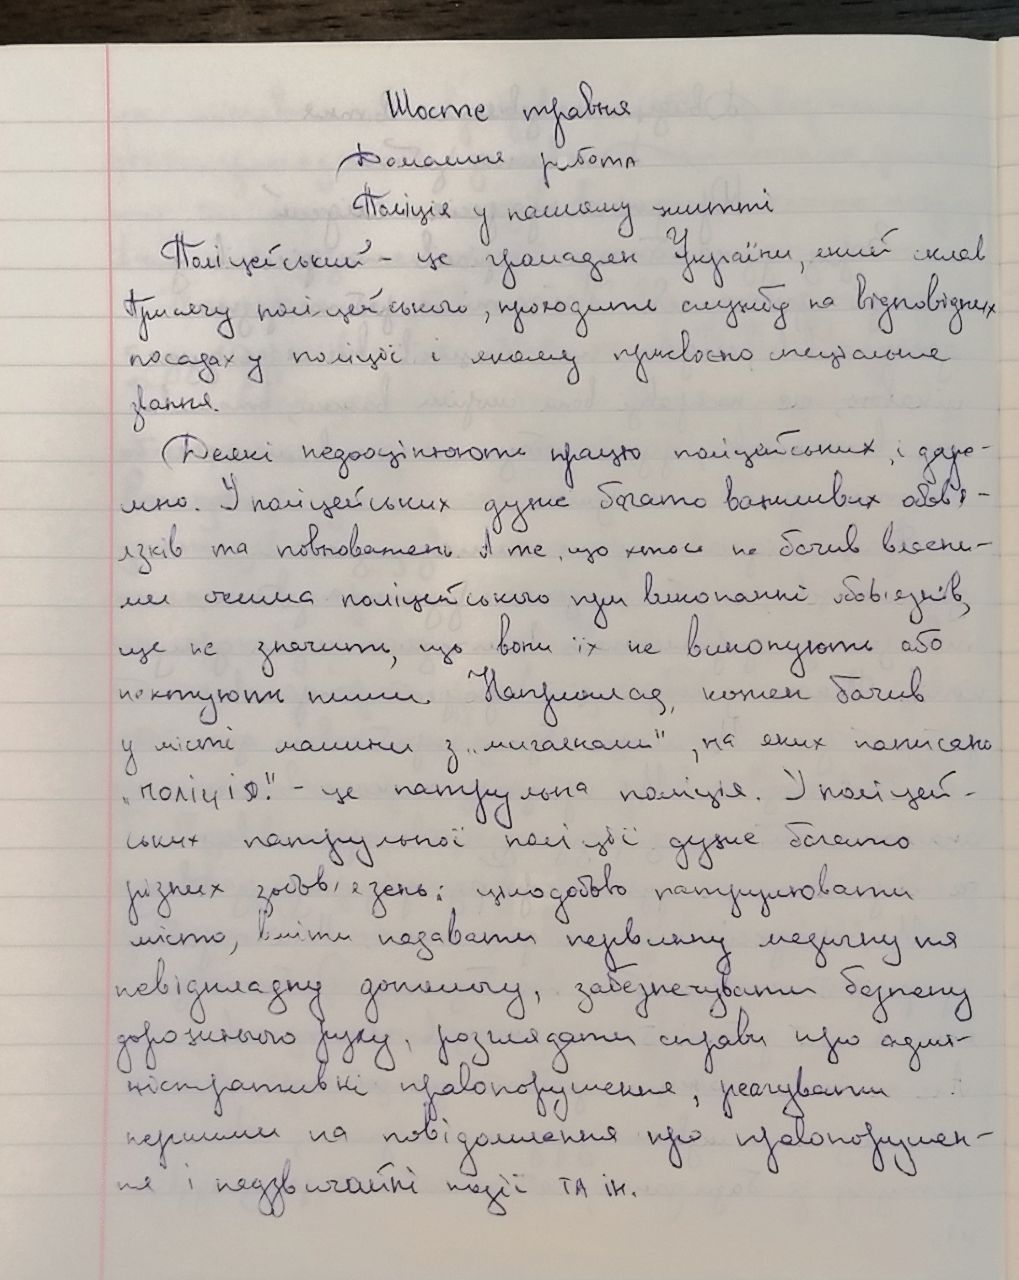 Шосте травня
Домашня робота
Поліція у нашому житті
Поліцейський - це громадян України, який склав
Присягу поліцейського, проходить службу на відповідних
посадах у поліції і якому присвоєно спеціальне
звання.
Деякі недооцінюють працю поліцейських, і даре-
мно. У поліцейських дуже багато важливих обов'я-
язків та повноважень. А те, що хтось не бачив власни-
ми очима поліцейського при виконанні обов'язків,
ще не значить, що вони їх не виконують або
нехтують ними. Наприклад, кожен бачив
у місті машини з „мигалками", на яких написано
„поліція." - це патрульна поліція. У поліцей-
ських патрульної поліції дуже багато
різних зобов'язень: цілодобово патрулювати
місто, вміти надавати первинну медичну ня
невідкладну допомогу, забезпечувати безпеку
дорожнього руху, розглядати справи про адмі-
ністративні правопорушення, реагувати
першими на повідомлення про правопорушен-
ня і надзвичайні події та ін.